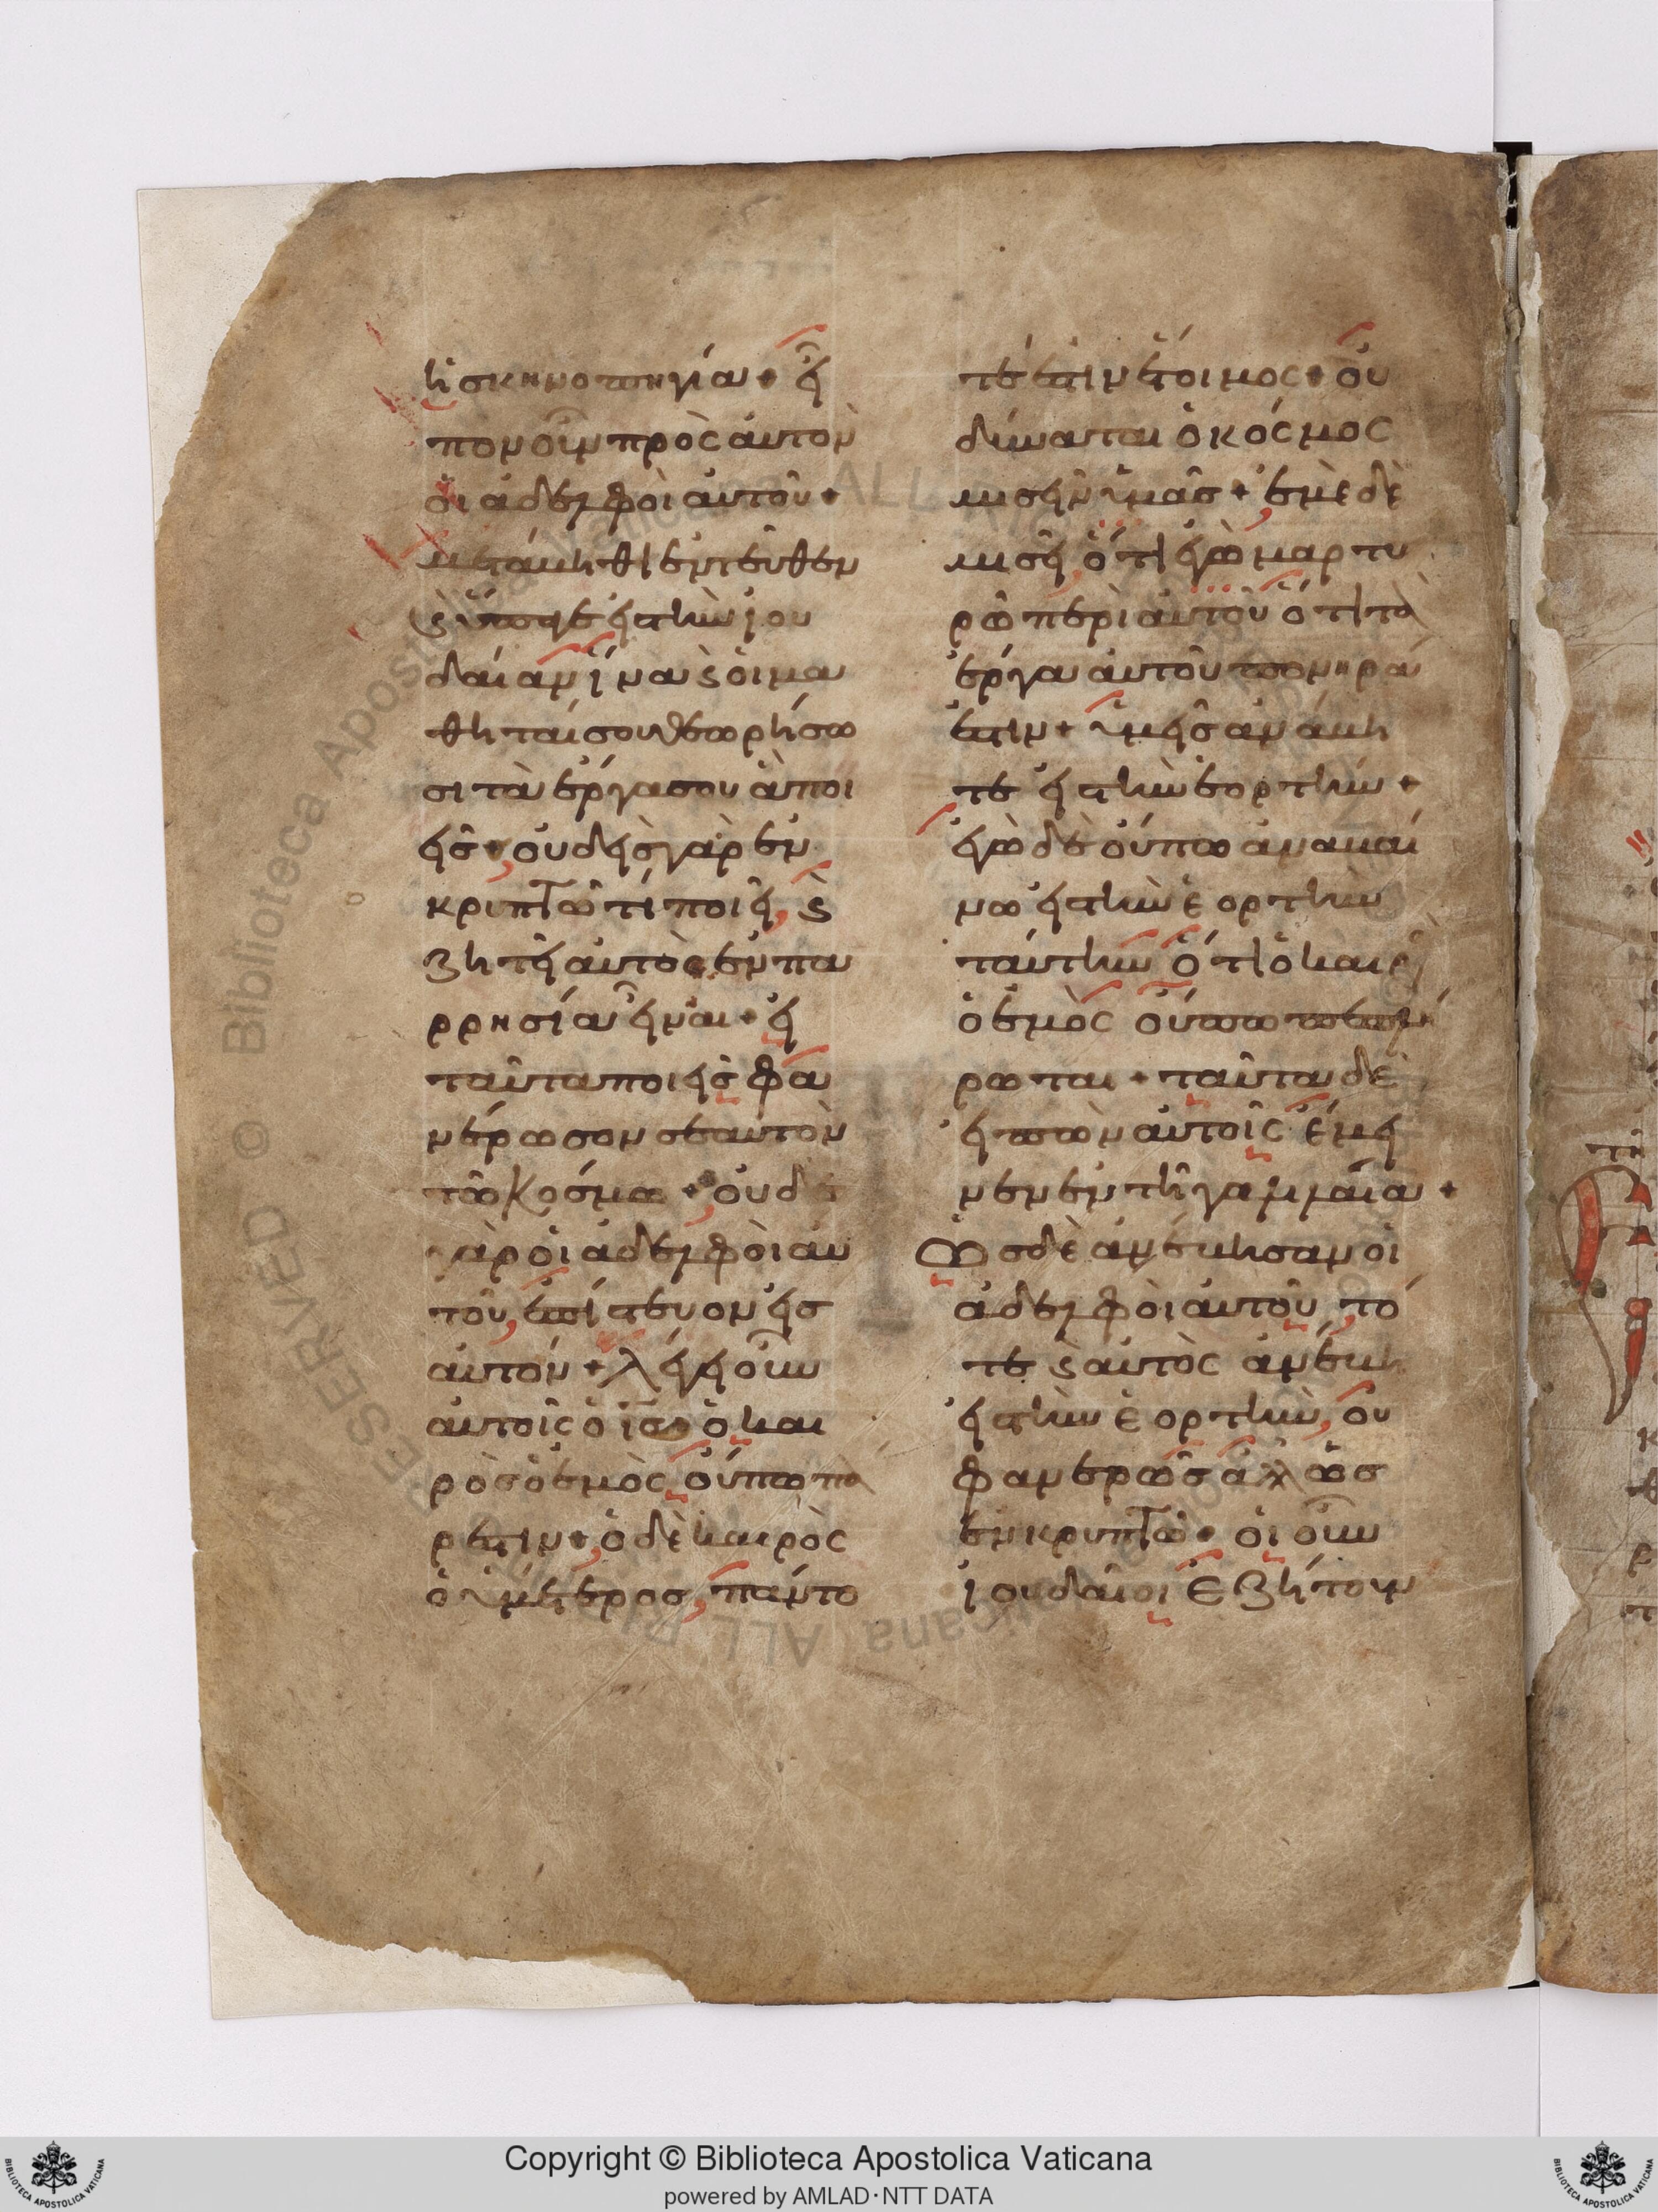 ἡ σκηνοπηγία + εἶ
πον οὖν πρὸς αὐτὸν
οἱ ἀδελφοὶ αὐτοῦ +
μετάβηθι ἐντεῦθεν
ϗ ὕπαγε εἰς τὴν ἰου
δαίαν ἵνα ϗ οἱ μα
θηταί σου θεωρήσω
σι τὰ ἔργα σου ἃ ποι
εῖς + οὐδεὶς γὰρ ἐν
κρυπτῶ τί ποιεῖ, ϗ
ζητεῖ αὐτὸς ἐν πα
ρρησία εἶναι + εἰ
ταῦτα ποιεῖς φα
νέρωσον σεαυτὸν
τῶ κόσμω + οὐδὲ
γὰρ οἱ ἀδελφοὶ αὐ
τοῦ, ἐπίστευον εἰς
αὐτόν + λέγει οὖν
αὐτοῖς ὁ ις + ὁ και
ρὸς ὁ ἐμὸς οὔπω πά
ρεστιν + ὁ δὲ καιρὸς
ὁ ὑμέτερος, πάντο
τέ ἐστιν ἕτοιμος + οὐ
δύναται ὁ κόσμος
μισεῖν ὑμᾶς + ἐμὲ δὲ
μισεῖ, ὅτι ἐγὼ μαρτυ
ρῶ περὶ αὐτοῦ ὅτι τὰ
ἔργα αὐτοῦ πονηρά
ἐστιν + ὑμεῖς ἀνάβη
τε εἰς τὴν ἑορτήν +
ἐγὼ δὲ οὔπω ἀναβαί
νω εἰς τὴν ἑορτὴν
ταύτην ὅτι ὁ καιρὸς
ὁ ἐμὸς οὔπω πεπλή
ρωται + ταῦτα δὲ
εἰπὼν αὐτοῖς ἔμει
νεν ἐν τῆ γαλιλαία +
Ὡς δὲ ἀνέβησαν οἱ
ἀδελφοὶ αὐτοῦ, τό
τε ϗ αὐτὸς ἀνέβη
εἰς τὴν ἑορτὴν, οὐ
φανερῶς ἀλλ' ὡς
ἐν κρυπτῶ + οἱ οὖν
ἰουδαῖοι ἐζήτουν
Copyright © Biblioteca Apostolica Vaticana
powered by AMLAD·NTT DATA